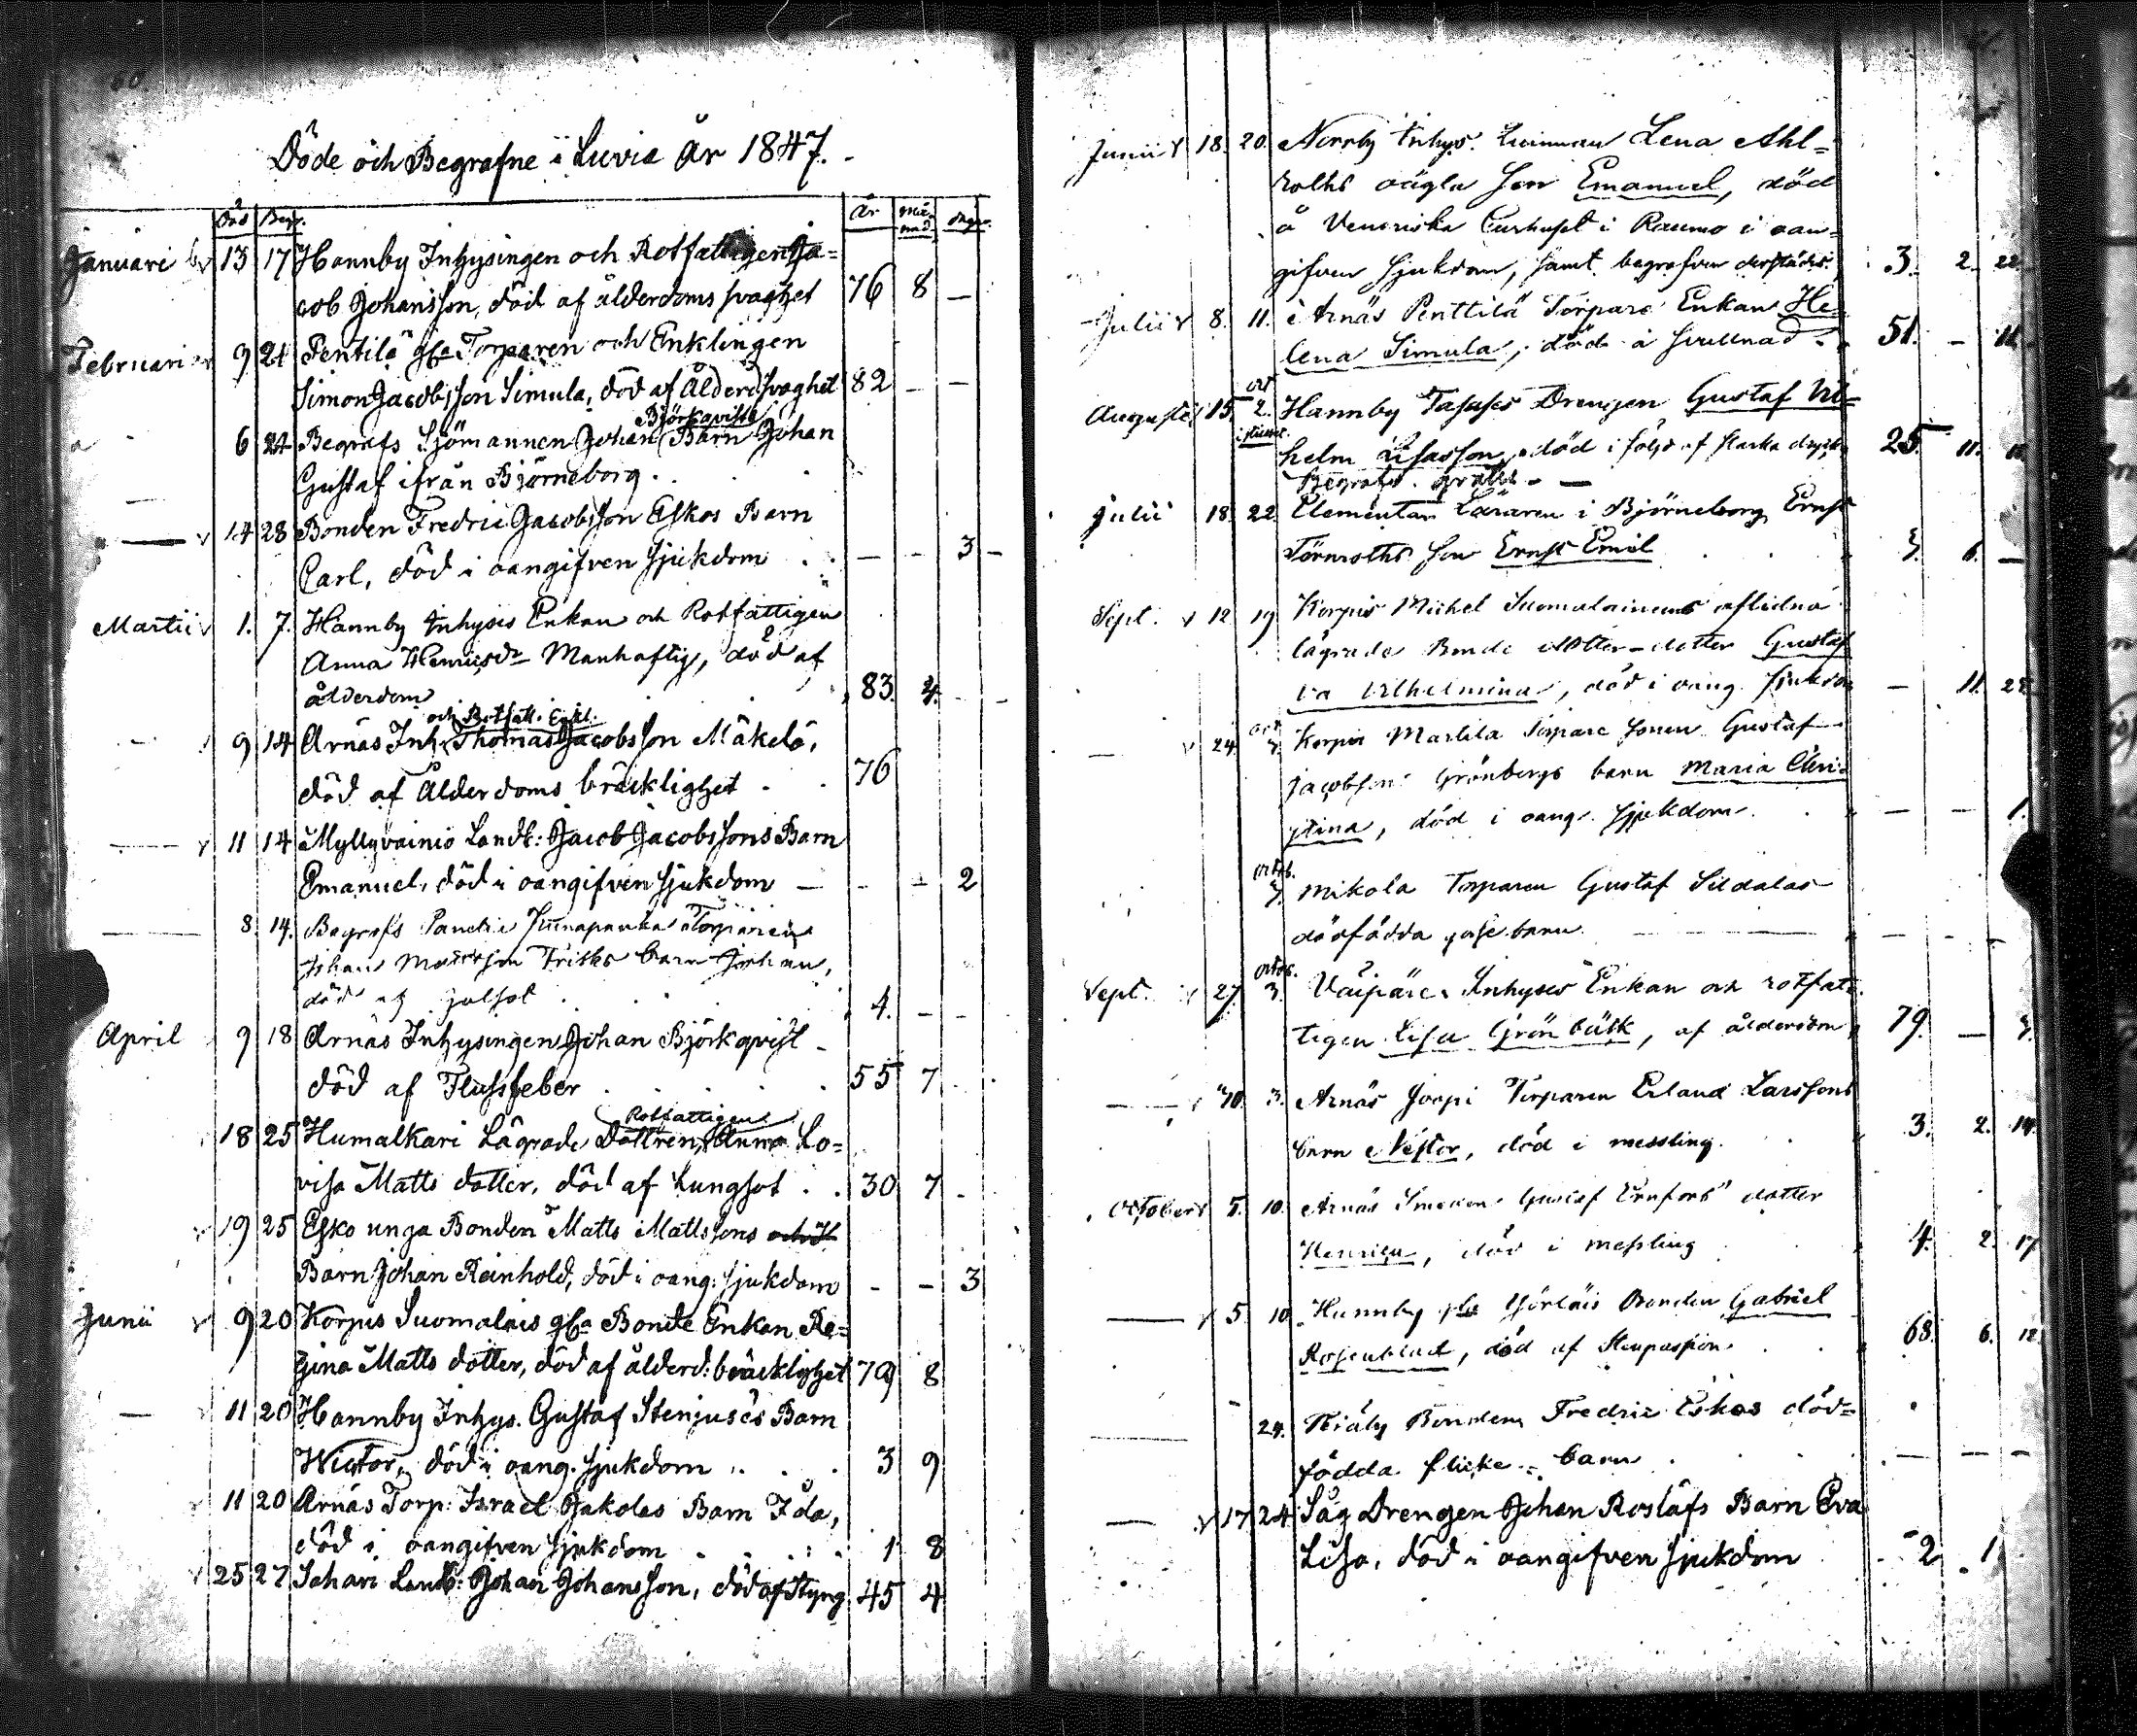 60.
Döde och Begrafne i Luvia År 1847.
Död Begr. År Månad Dagar
Januari 13 17 Hannby Inhysingen och Rotfattigen Ja=
cob Johansson, död af ålderdoms svaghet 76 8 —
Februari 9 24 Pentilä gla Torparen och Enklingen
Simon Jacobsson Simula, död af Ålderd. svaghet 82 — —
Björkqvists
6 24 Begrafs Sjömannen Johan Barn Johan
Gustaf ifrån Björneborg.
— 14 28 Bonden Fredric Jacobsson Eskos Barn
Carl, död i oangifven sjukdom — — 3
Martii 1. 7. Hannby Inhyses Enkan och Rotfattigen
Anna Henricsdr Manhaftig, död af
ålderdom 83. 4.
och Rotfatt. Enkl.
9 14 Arnäs Inh. Thomas Jacobsson Mäkelä,
död af Ålderdoms bräcklighet 76
— 11 14 Myllyvainio Landb: Jacob Jacobssons Barn
Emanuel, död i oangifven sjukdom — — — 2
— 8. 14. Begrafs Torparen
Johan Frisks barn Johan,
död af 4. — —
April 9 18 Arnäs Inhysingen Johan Björkqvist
död af Flussfeber 55 7
Rotfattigen
18 25 Humalkari Lägrade Dottren, Anna Lo=
visa Matts dotter, död af Lungsot 30 7
19 25 Esko unga Bonden Matts Mattssons
Barn Johan Reinhold, död i oang: sjukdom — — 3
Junii 9 20 Korpis Suomalais gla Bonde Enkan Re=
gina Matts dotter, död af ålderd: bräcklighet 79 8
— 11 20 Hannby Inhys. Gustaf Stenjuses Barn
Wictor, död i oang. sjukdom 3 9
11 20 Arnäs Torp: Israel Jakolas Barn Ida,
död i oangifven sjukdom 1 8
25 27 Sahari Landb: Johan Johansson, död af Styng 45 4
Junii 18. 20. Norrby Inhys. Quinnan Lena Ahl=
roths oägta Son Emanuel, död
å Veneriska Curhuset i Raumo i oan=
gifven sjukdom, samt begrafven derstädes. 3. 2. 22.
Julii 8. 11. Arnäs Penttilä Torpare Enkan He=
lena Simula, död i svullnad 51. — 11.
Augusti 15. 2. Hannby Drengen Gustaf Vil=
helm död i följd af starka
Begrafs 25. 11.
Julii 18. 22. Elementar Läraren i Björneborg Ernst
Törnroths Son Ernst Emil 6. —
Sept. 12 19 Korpis Michel Suomalainens aflidna
lägrade Bonde dotter-dotter Gustaf
va Vilhelmina, död i oang. sjukdom — 11.
— 24. oct. 3 Korpis Marttila Torpare Sonen Gustaf
Jacobsson Grönbergs barn Maria Chri=
stina, död i oang. sjukdom — — 1.
octob.
3 Mikola Torparen Gustaf
dödfödda gosse barn — — —
octob.
Sept. 27. 3. Inhyses Enkan och rotfat=
tigen Lisa Grönbäck, af ålderdom 79. —
— 30. 3. Arnäs Torparen Erland Larssons
barn Nestor, död i messling. 3. 2. 14.
October 5. 10. Arnäs Smeden Gustaf Ernfors dotter
Henrica, död i messling 4. 2. 17
— 5. 10. Hannby gla Bonden Gabriel
Rosenblad, död af Stenpassion 68. 6. 12.
— 24. Bonden Fredric Eskos död=
födda flicke-barn — — —
— 17 24 Såg Drengen Johan Roslöfs Barn Eva
Lisa, död i oangifven sjukdom 2 1